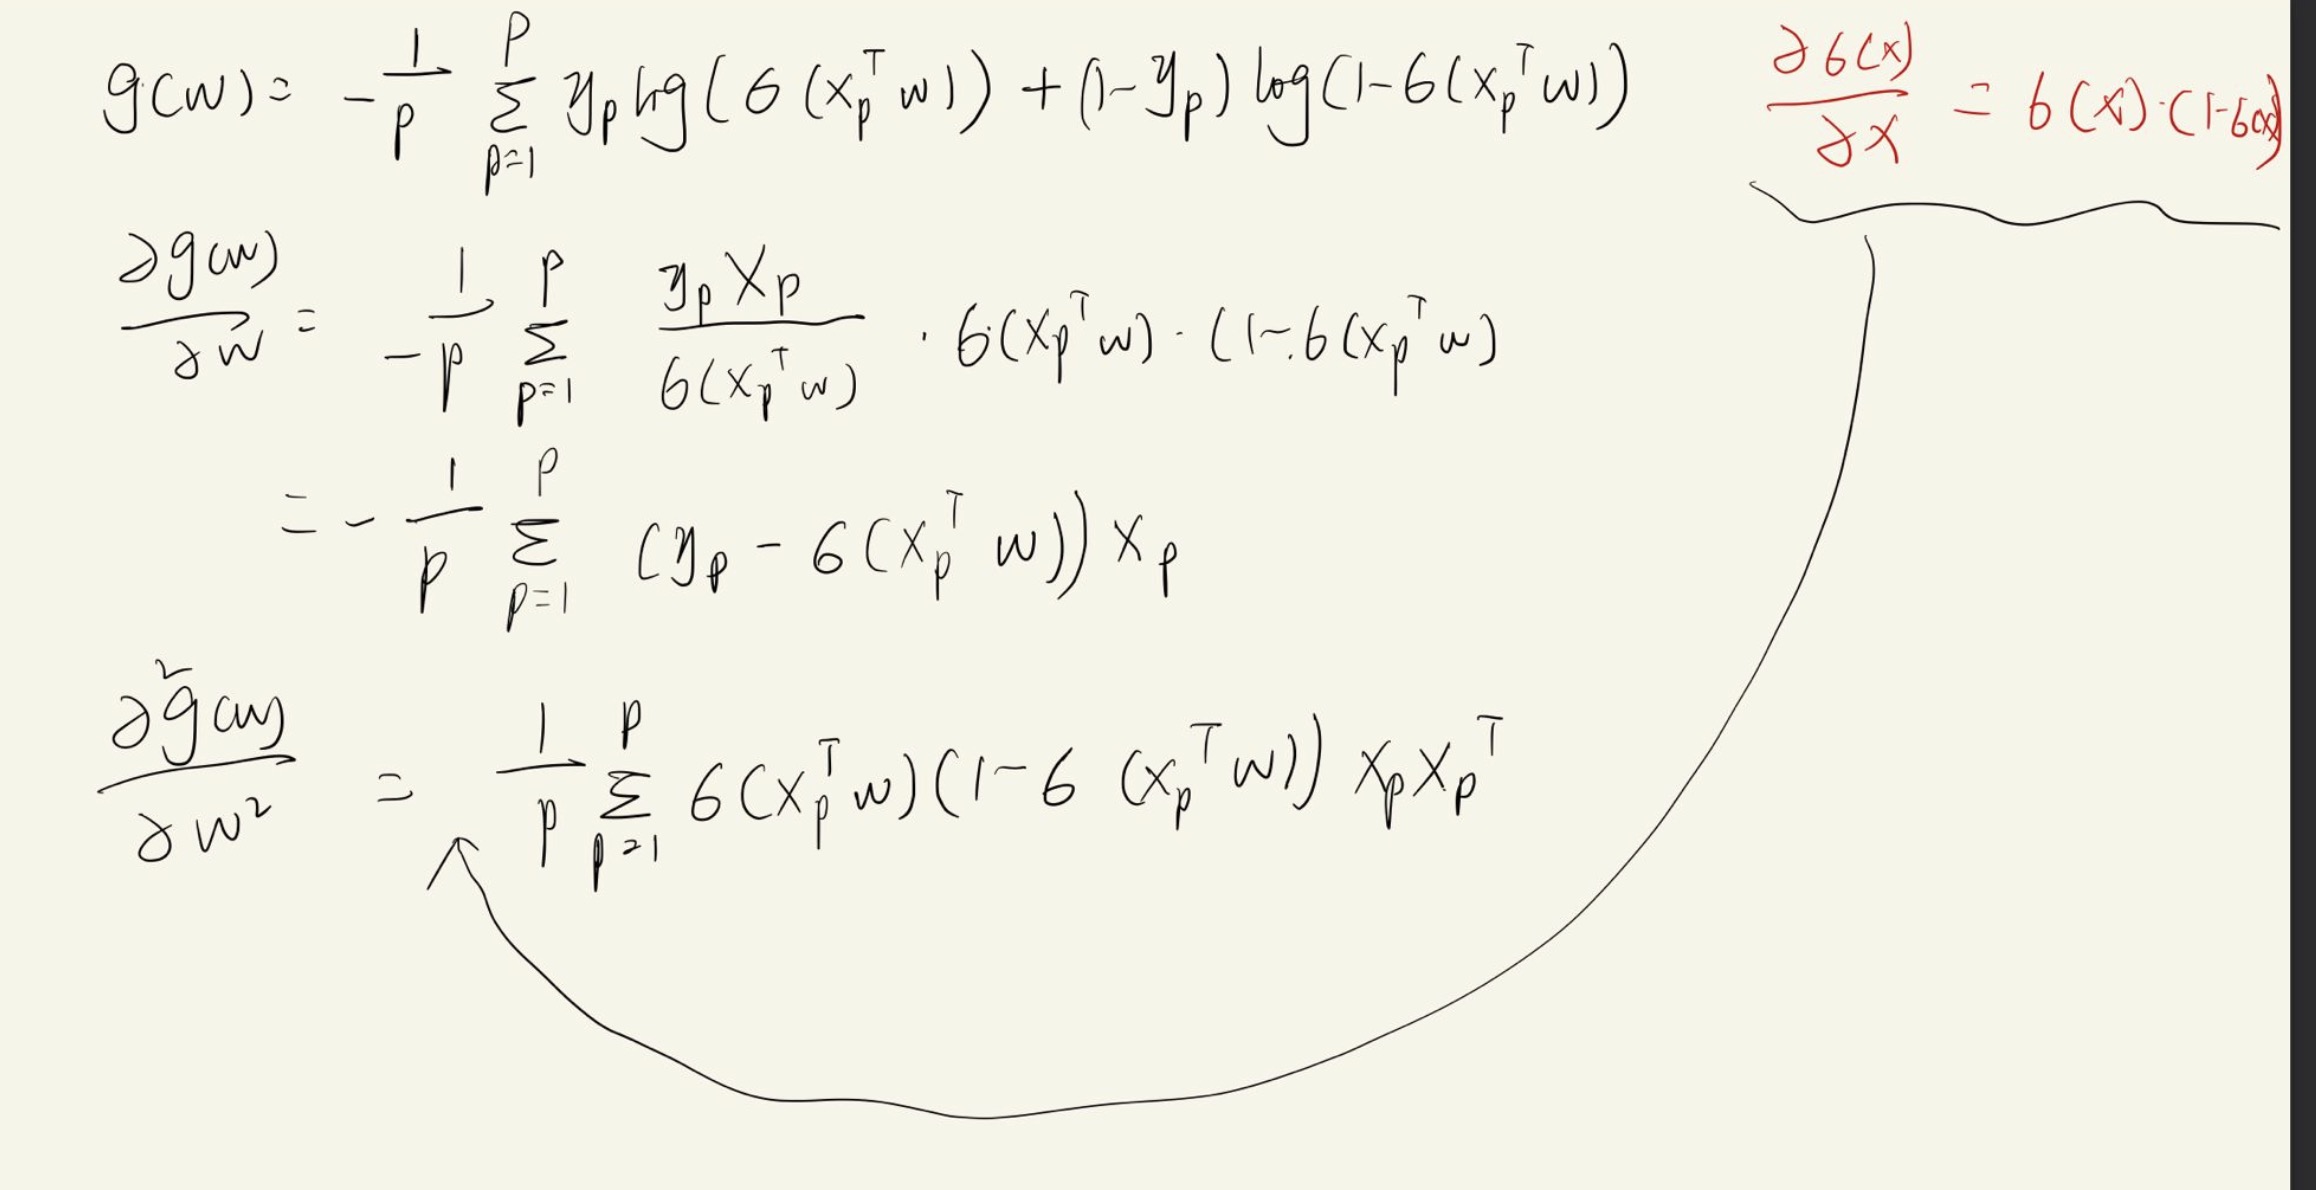 g(w) = -1/P Σ_{p=1}^{P} y_p log(σ(x_p^T w)) + (1-y_p) log(1-σ(x_p^T w))
∂σ(x)/∂x = σ(x)·(1-σ(x))
∂g(w)/∂w = -1/P Σ_{p=1}^{P} y_p x_p / σ(x_p^T w) · σ(x_p^T w)·(1-σ(x_p^T w)
= -1/P Σ_{p=1}^{P} (y_p - σ(x_p^T w)) x_p
∂²g(w)/∂w² = 1/P Σ_{p=1}^{P} σ(x_p^T w)(1-σ(x_p^T w)) x_p x_p^T